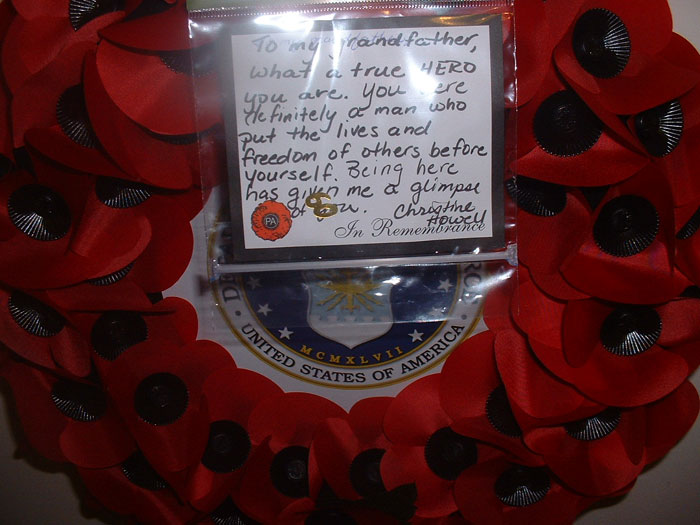 To my grandfather,
what a true HERO
you are. You were
definitely a man who
put the lives and
freedom of others before
yourself. Being here
has given me a glimpse
of you. Christine
Howell
PA
In Remembrance
MCMXLVII
UNITED STATES OF AMERICA